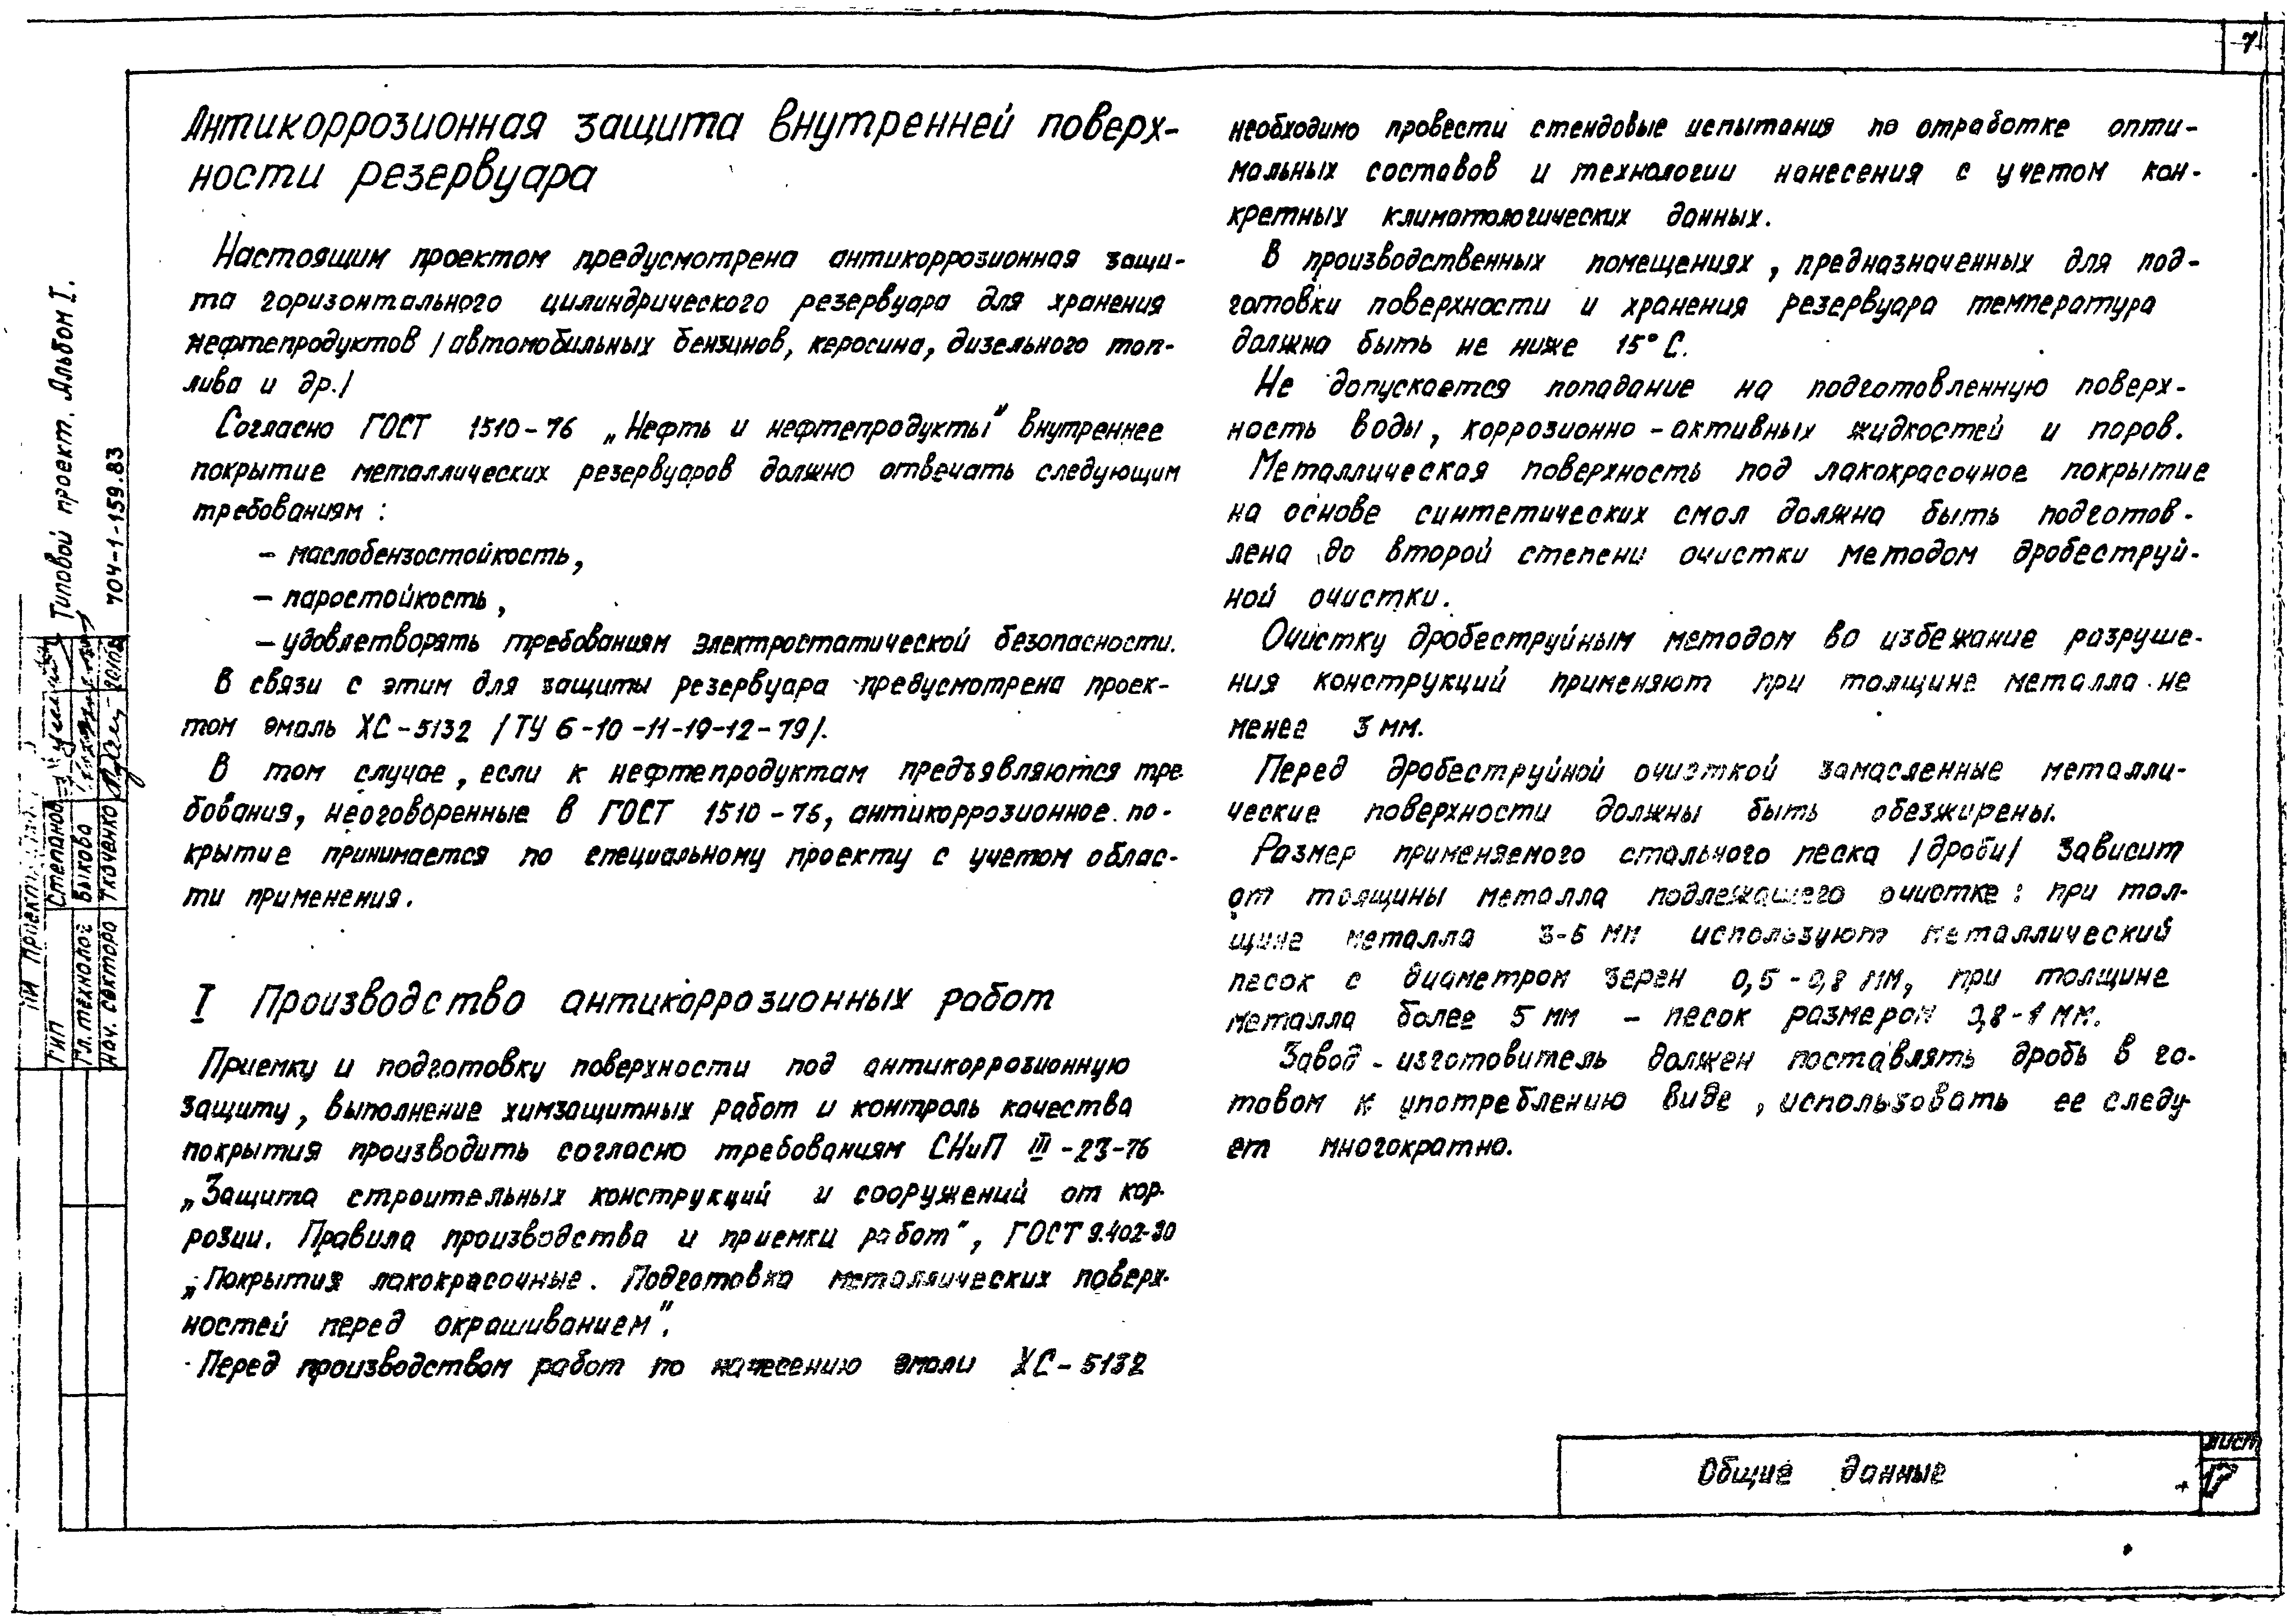 7
Антикоррозионная защита внутренней поверх-
ности резервуара
Настоящим проектом предусмотрена антикоррозионная защи-
та горизонтального цилиндрического резервуара для хранения
нефтепродуктов /автомобильных бензинов, керосина, дизельного топ-
лива и др./
Согласно ГОСТ 1510-76 „Нефть и нефтепродукты" внутреннее
покрытие металлических резервуаров должно отвечать следующим
требованиям:
- маслобензостойкость,
- паростойкость,
- удовлетворять требованиям электростатической безопасности.
В связи с этим для защиты резервуара предусмотрена проек-
том эмаль ХС-5132 /ТУ 6-10-11-19-12-79/.
В том случае, если к нефтепродуктам предъявляются тре-
бования, неоговоренные в ГОСТ 1510-76, антикоррозионное по-
крытие принимается по специальному проекту с учетом облас-
ти применения.
I Производство антикоррозионных работ
Приемку и подготовку поверхности под антикоррозионную
защиту, выполнение химзащитных работ и контроль качества
покрытия производить согласно требованиям СНиП III-23-76
„Защита строительных конструкций и сооружений от кор-
розии. Правила производства и приемки работ", ГОСТ 9.402-80
„Покрытия лакокрасочные. Подготовка металлических поверх-
ностей перед окрашиванием".
Перед производством работ по нанесению эмали ХС-5132
необходимо провести стендовые испытания по отработке опти-
мальных составов и технологии нанесения с учетом кон-
кретных климатологических данных.
В производственных помещениях, предназначенных для под-
готовки поверхности и хранения резервуара температура
должна быть не ниже 15°С.
Не допускается попадание на подготовленную поверх-
ность воды, коррозионно-активных жидкостей и паров.
Металлическая поверхность под лакокрасочное покрытие
на основе синтетических смол должна быть подготов-
лена до второй степени очистки методом дробеструй-
ной очистки.
Очистку дробеструйным методом во избежание разруше-
ния конструкций применяют при толщине металла не
менее 3 мм.
Перед дробеструйной очисткой замасленные металли-
ческие поверхности должны быть обезжирены.
Размер применяемого стального песка /дроби/ зависит
от толщины металла подлежащего очистке: при тол-
щине металла 3-5 мм используют металлический
песок с диаметром зерен 0,5-0,8 мм, при толщине
металла более 5 мм - песок размером 0,8-1 мм.
Завод-изготовитель должен поставлять дробь в го-
товом к употреблению виде, использовать ее следу-
ет многократно.
Типовой проект. Альбом I.
704-1-159.83
ГИП Степанов
Гл. технолог Быкова
Нач. сектора Ткаченко
Общие данные
лист
17